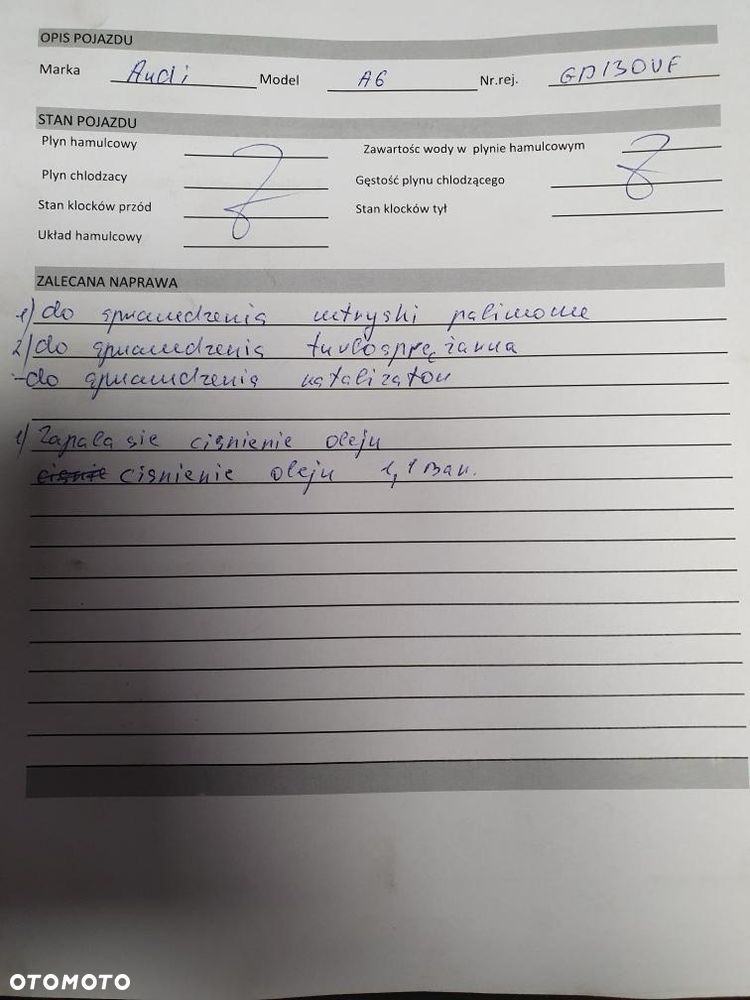 OPIS POJAZDU
Marka Audi Model A6 Nr.rej. GD130VF
STAN POJAZDU
Plyn hamulcowy Zawartośc wody w plynie hamulcowym
Plyn chlodzacy Gęstość plynu chlodzącego
Stan klocków przód Stan klocków tył
Układ hamulcowy
ZALECANA NAPRAWA
1) do sprawdzenia wtryski paliwowe
2) do sprawdzenia turbosprężarka
- do sprawdzenia katalizator
1) Zapala sie cisnienie oleju
cisnienie oleju 1,1 Bar.
OTOMOTO